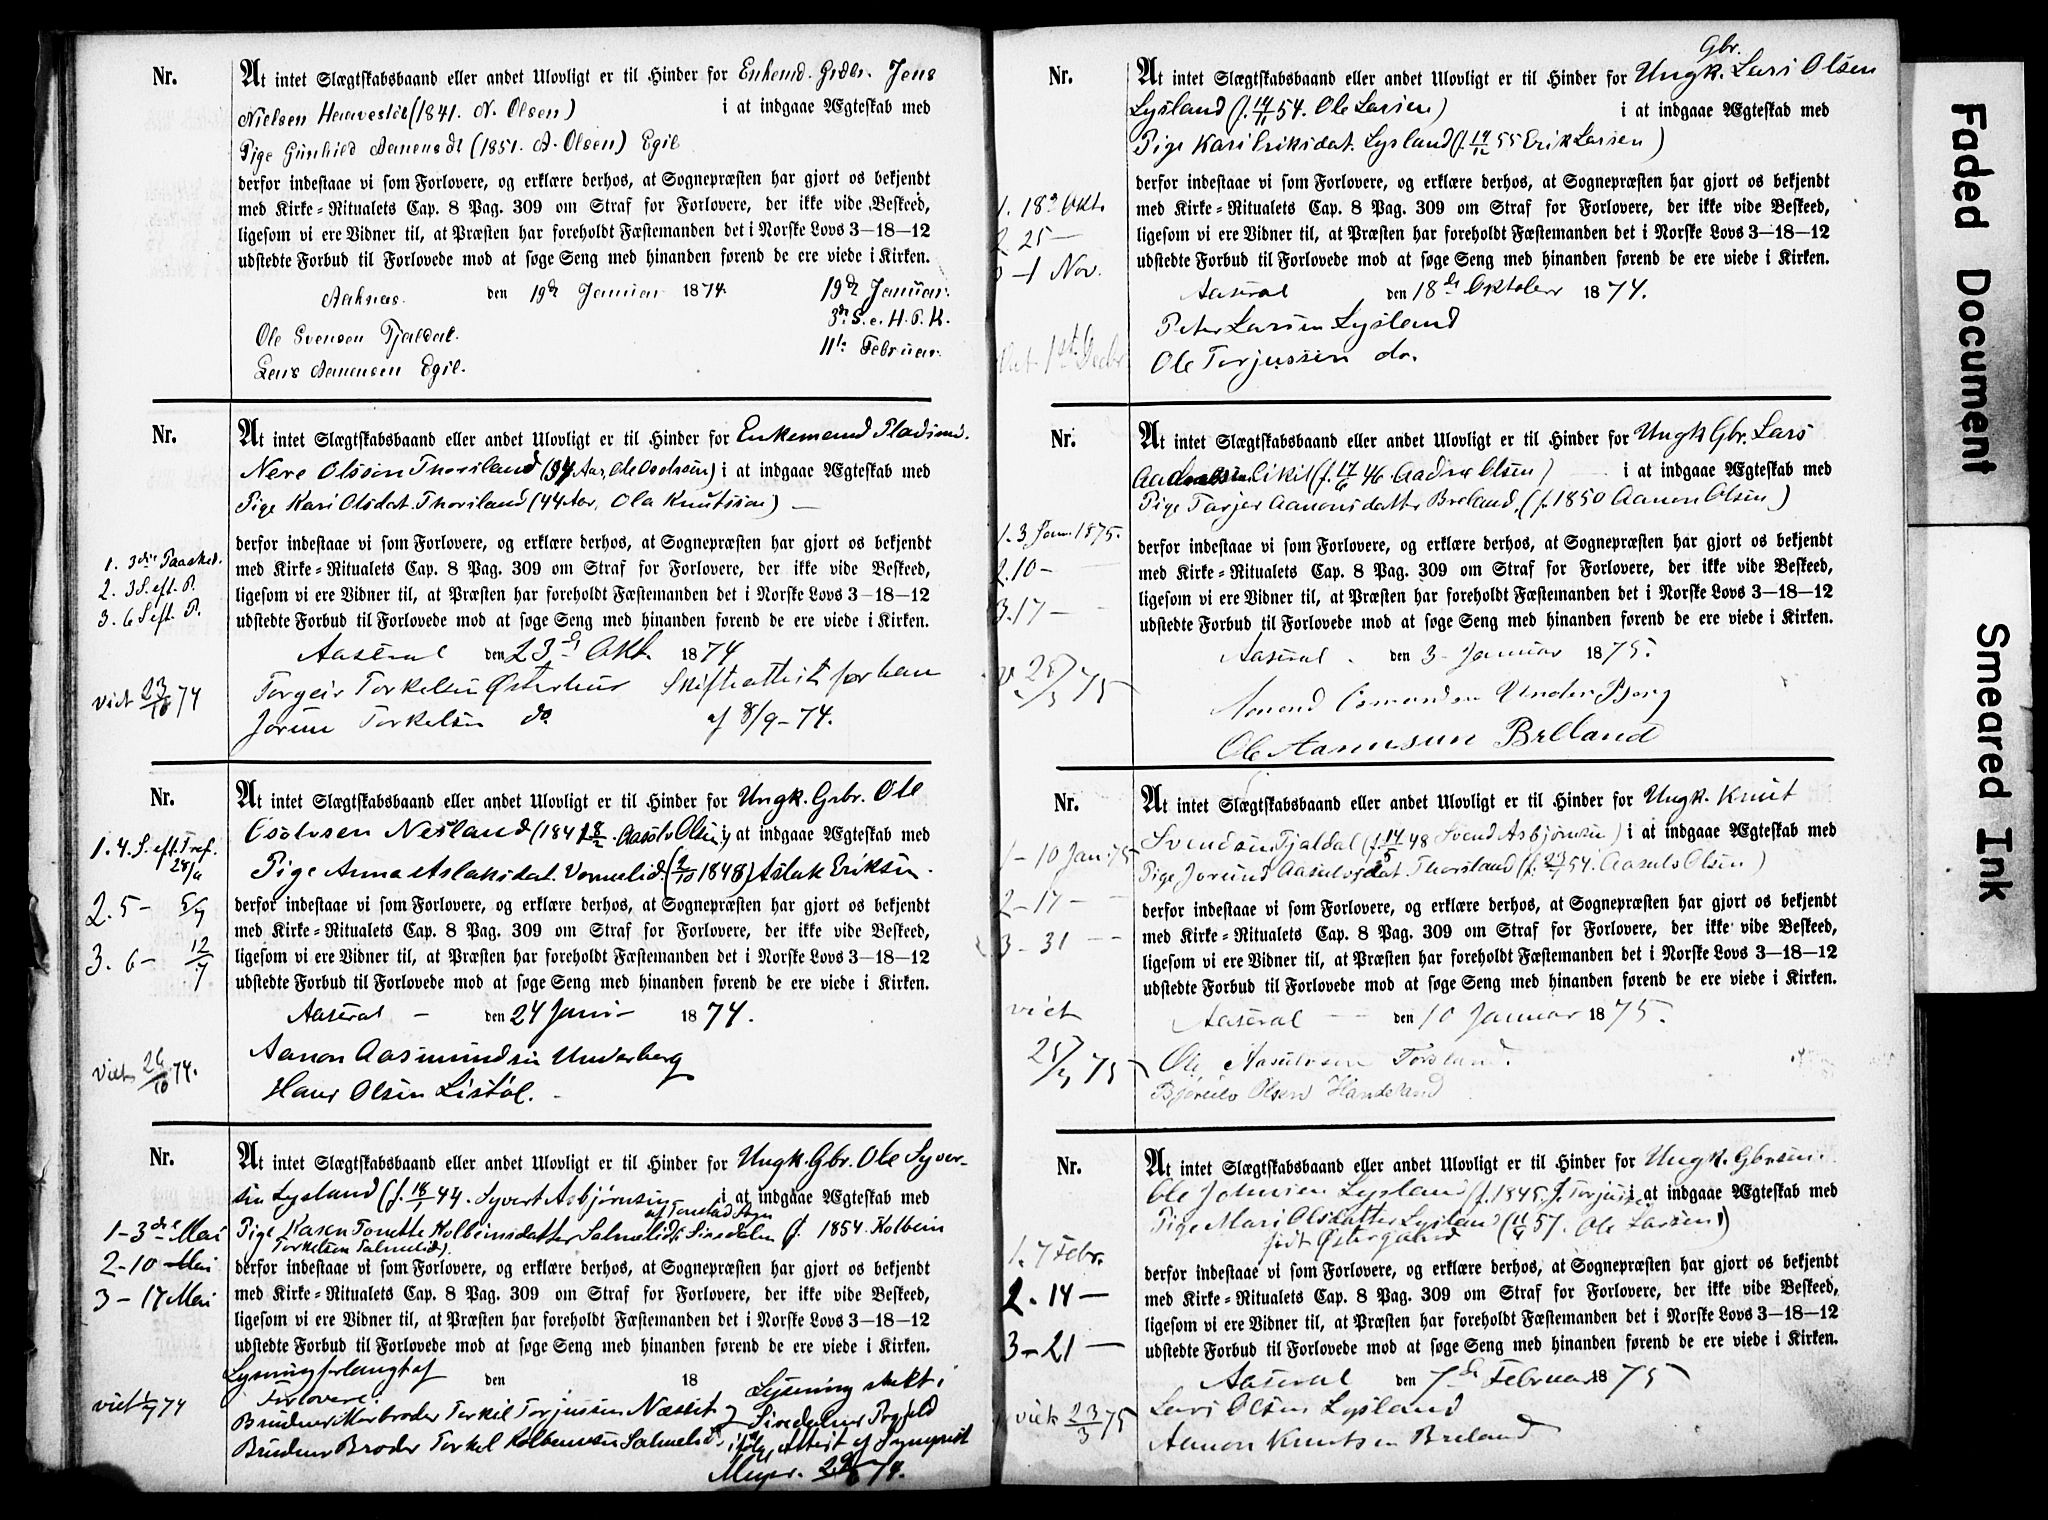 Nr.
At intet Slægtskabsbaand eller andet Ulovligt er til Hinder for Enkemd. Grdbr. Jens
Nielsen Haavestøl (1841. N. Olsen) i at indgaae Ægteskab med
Pige Gunhild Aanensdt (1851. A. Olsen) Egil
derfor indestaae vi som Forlovere, og erklære derhos, at Sognepræsten har gjort os bekjendt
med Kirke=Ritualets Cap. 8 Pag. 309 om Straf for Forlovere, der ikke vide Beskeed,
ligesom vi ere Vidner til, at Præsten har foreholdt Fæstemanden det i Norske Lovs 3—18—12
udstedte Forbud til Forlovede mod at søge Seng med hinanden førend de ere viede i Kirken.
Aaknæs. den 19de Januar 1874. 19de Januar.
3die S. e. H. 3. K.
Ole Svensen Tjaldal. 11te Februar.
Lars Aanensen Egil.
Nr.
At intet Slægtskabsbaand eller andet Ulovligt er til Hinder for Enkemand Pladsmd.
Nere Olsson Thorsland (34 Aar, Ole Osolvsen) i at indgaae Ægteskab med
Pige Kari Olsdat. Thorsland (44 Aar, Ola Knutsson) —
derfor indestaae vi som Forlovere, og erklære derhos, at Sognepræsten har gjort os bekjendt
1. 3die Paasked.
med Kirke=Ritualets Cap. 8 Pag. 309 om Straf for Forlovere, der ikke vide Beskeed,
2. 3 S. eft. P.
ligesom vi ere Vidner til, at Præsten har foreholdt Fæstemanden det i Norske Lovs 3—18—12
3. 6 S eft. P.
udstedte Forbud til Forlovede mod at søge Seng med hinanden førend de ere viede i Kirken.
Aaseral den 23de Okt. 1874
viet 23/10 74
Torgeir Torkelsen Østerhus Skifteattest for ham
Jørun Torkelsen do. af 8/9—74.
Nr.
At intet Slægtskabsbaand eller andet Ulovligt er til Hinder for Ungk. Grbr. Ole
Osolvsen Nesland (184 8/2. Aasulv Olsen) i at indgaae Ægteskab med
1. 4. S. eft. Tref. 28/6
Pige Anna Aslaksdat. Vormelid. (2/10 1848) Aslak Eriksen.
derfor indestaae vi som Forlovere, og erklære derhos, at Sognepræsten har gjort os bekjendt
2. 5 — 5/7
med Kirke=Ritualets Cap. 8 Pag. 309 om Straf for Forlovere, der ikke vide Beskeed,
3. 6 — 12/7
ligesom vi ere Vidner til, at Præsten har foreholdt Fæstemanden det i Norske Lovs 3—18—12
udstedte Forbud til Forlovede mod at søge Seng med hinanden førend de ere viede i Kirken.
Aaseral — den 24 Juni — 1874.
viet 26/10 74.
Aanon Aasmundsen Underberg
Hans Olsen Listøl.
Nr.
At intet Slægtskabsbaand eller andet Ulovligt er til Hinder for Ungk. Gbr. Ole Syver-
sen Lysland (f. 18/7 44. Syvert Asbjørnsen i at indgaae Ægteskab med
af Tonstad Sogn
Pige Karen Tonette Kolbeinsdatter Salmelid, Siredalen (f. 1854. Kolbein
Torkelsen Salmelid).
1—3die Mai
2—10 Mai
3—17 Mai
derfor indestaae vi som Forlovere, og erklære derhos, at Sognepræsten har gjort os bekjendt
med Kirke=Ritualets Cap. 8 Pag. 309 om Straf for Forlovere, der ikke vide Beskeed,
ligesom vi ere Vidner til, at Præsten har foreholdt Fæstemanden det i Norske Lovs 3—18—12
udstedte Forbud til Forlovede mod at søge Seng med hinanden førend de ere viede i Kirken.
Lysning forlangt af den 18 Lysning skekt i
Forlovere:
viet 1/7 74
Brudens Morbroder Torkil Torjussen Næsset Siredalens Prgjeld
Brudens Broder Torkel Kolbeinsen Salmelid ifølg. Attest af Sognepræst
Meyer. 29/6 74.
Nr.
Gbr.
At intet Slægtskabsbaand eller andet Ulovligt er til Hinder for Ungk. Lars Olsen
Lysland (f. 14/11 54. Ole Larsen) i at indgaae Ægteskab med
Pige Kari Eriksdat. Lysland (f. 14/12 55 Erik Larsen)
derfor indestaae vi som Forlovere, og erklære derhos, at Sognepræsten har gjort os bekjendt
1. 18de Okt.
med Kirke=Ritualets Cap. 8 Pag. 309 om Straf for Forlovere, der ikke vide Beskeed,
2 25 —
ligesom vi ere Vidner til, at Præsten har foreholdt Fæstemanden det i Norske Lovs 3—18—12
— 1 Nov.
udstedte Forbud til Forlovede mod at søge Seng med hinanden førend de ere viede i Kirken.
Aaseral den 18de Oktober 1874.
Peter Larsen Lysland
Ole Torjussen do.
Nr.
At intet Slægtskabsbaand eller andet Ulovligt er til Hinder for Ungk Gbr. Lars
Aadnesen Eikil (f. 17/6 46 Aadne Olsen) — i at indgaae Ægteskab med
Pige Torjer Aanonsdatter Breland, (f. 1850 Aanon Olsen)
1. 3 Jan. 1875.
derfor indestaae vi som Forlovere, og erklære derhos, at Sognepræsten har gjort os bekjendt
2. 10 —
med Kirke=Ritualets Cap. 8 Pag. 309 om Straf for Forlovere, der ikke vide Beskeed,
3. 17 —
ligesom vi ere Vidner til, at Præsten har foreholdt Fæstemanden det i Norske Lovs 3—18—12
udstedte Forbud til Forlovede mod at søge Seng med hinanden førend de ere viede i Kirken.
Aaseral. den 3 Januar 1875.
25/3 75
Osmundsen Underberg
Ole Aanensen Brelland
Nr.
At intet Slægtskabsbaand eller andet Ulovligt er til Hinder for Ungk. Knut
Svendsen Tjaldal (f. 14/5 48 Svend Asbjørnsen) i at indgaae Ægteskab med
1—10 Jan. 75
Pige Jorund Aasulvsdat. Thorsland (f. 27/7 54. Aasulv Olsen)
2—17 —
derfor indestaae vi som Forlovere, og erklære derhos, at Sognepræsten har gjort os bekjendt
3—31 —
med Kirke=Ritualets Cap. 8 Pag. 309 om Straf for Forlovere, der ikke vide Beskeed,
ligesom vi ere Vidner til, at Præsten har foreholdt Fæstemanden det i Norske Lovs 3—18—12
udstedte Forbud til Forlovede mod at søge Seng med hinanden førend de ere viede i Kirken.
viet
Aaseral — den 10 Januar 1875.
25/3 75
Ole Aasulvsen Torsland.
Bjørulv Olsen Handeland
Nr.
At intet Slægtskabsbaand eller andet Ulovligt er til Hinder for Ungk. Gbrsøn
Ole Johnsen Lysland (f. 1845, J. Torjusen) i at indgaae Ægteskab med
Pige Mari Olsdatter Lysland (11/9 57. Ole Larsen)
født Østergaard
1. 7 Febr.
2. 14 —
3—21 —
derfor indestaae vi som Forlovere, og erklære derhos, at Sognepræsten har gjort os bekjendt
med Kirke=Ritualets Cap. 8 Pag. 309 om Straf for Forlovere, der ikke vide Beskeed,
ligesom vi ere Vidner til, at Præsten har foreholdt Fæstemanden det i Norske Lovs 3—18—12
udstedte Forbud til Forlovede mod at søge Seng med hinanden førend de ere viede i Kirken.
Aaseral den 7de Februar 1875
viet 23/3 75
Lars Olsen Lysland
Aanon Knutsen Breland
Faded Document
Smeared Ink